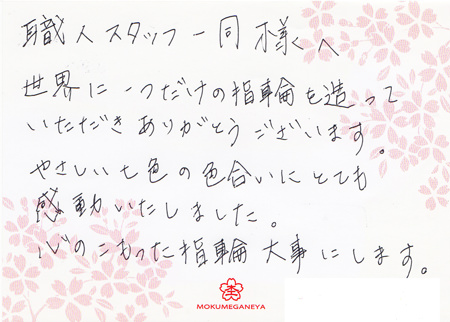 職人スタッフ一同様へ
世界に一つだけの指輪を造って
いただきありがとうございます。
やさしい七色の色合いにとても
感動いたしました。
心のこもった指輪大事にします。
MOKUMEGANEYA